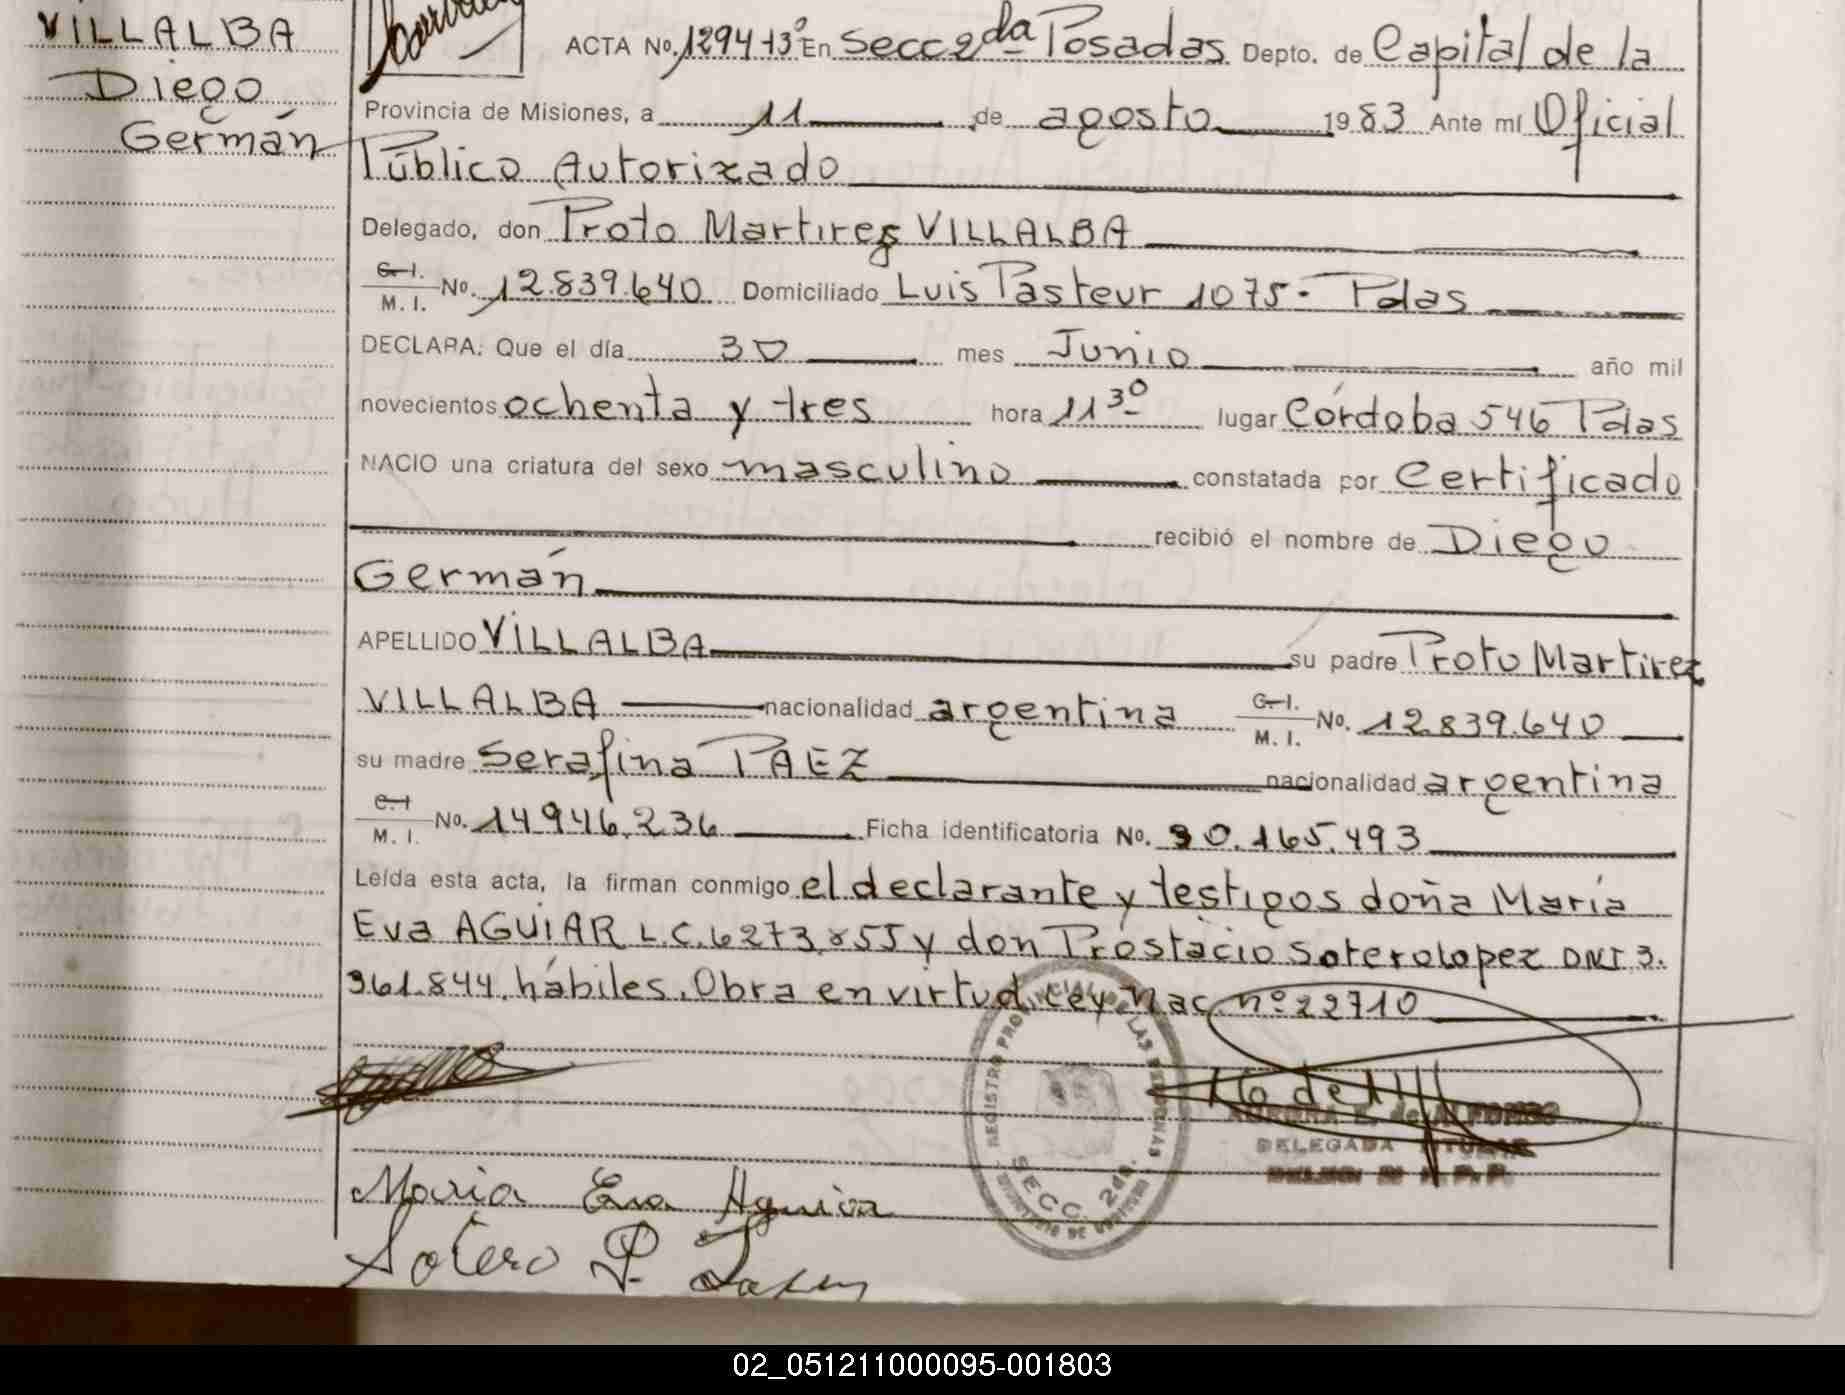 VILLALBA
Diego
Germán
ACTA No. 1294-13º En Secc 2da Posadas Depto. de Capital de la
Provincia de Misiones, a 11 de agosto 1983 Ante mí Oficial
Público Autorizado
Delegado, don Proto Martires VILLALBA
C.I. M. I. No. 12.839.640 Domiciliado Luis Pasteur 1075- Pdas
DECLARA: Que el día 30 mes Junio año mil
novecientos ochenta y tres hora 11 30 lugar Córdoba 546 Pdas
NACIO una criatura del sexo masculino constatada por Certificado
recibió el nombre de Diego
Germán
APELLIDO VILLALBA su padre Proto Martirez
VILLALBA nacionalidad argentina C.I. M. I. No. 12.839.640
su madre Serafina PAEZ nacionalidad argentina
C.I M. I. No. 14946.236 Ficha identificatoria No. 30.165.493
Leída esta acta, la firman conmigo el declarante y testigos doña María
Eva AGUIAR L.C. 6273.855 y don Prostacio Soterolopez DNI 3.
361.844, hábiles. Obra en virtud Ley Nac nº 22710
REGISTRO PROVINCIAL DE LAS PERSONAS
SECC. 2da.
DELEGADA TITULAR
Maria Eva Aguiar
Sotero P. Lopez
02_051211000095-001803